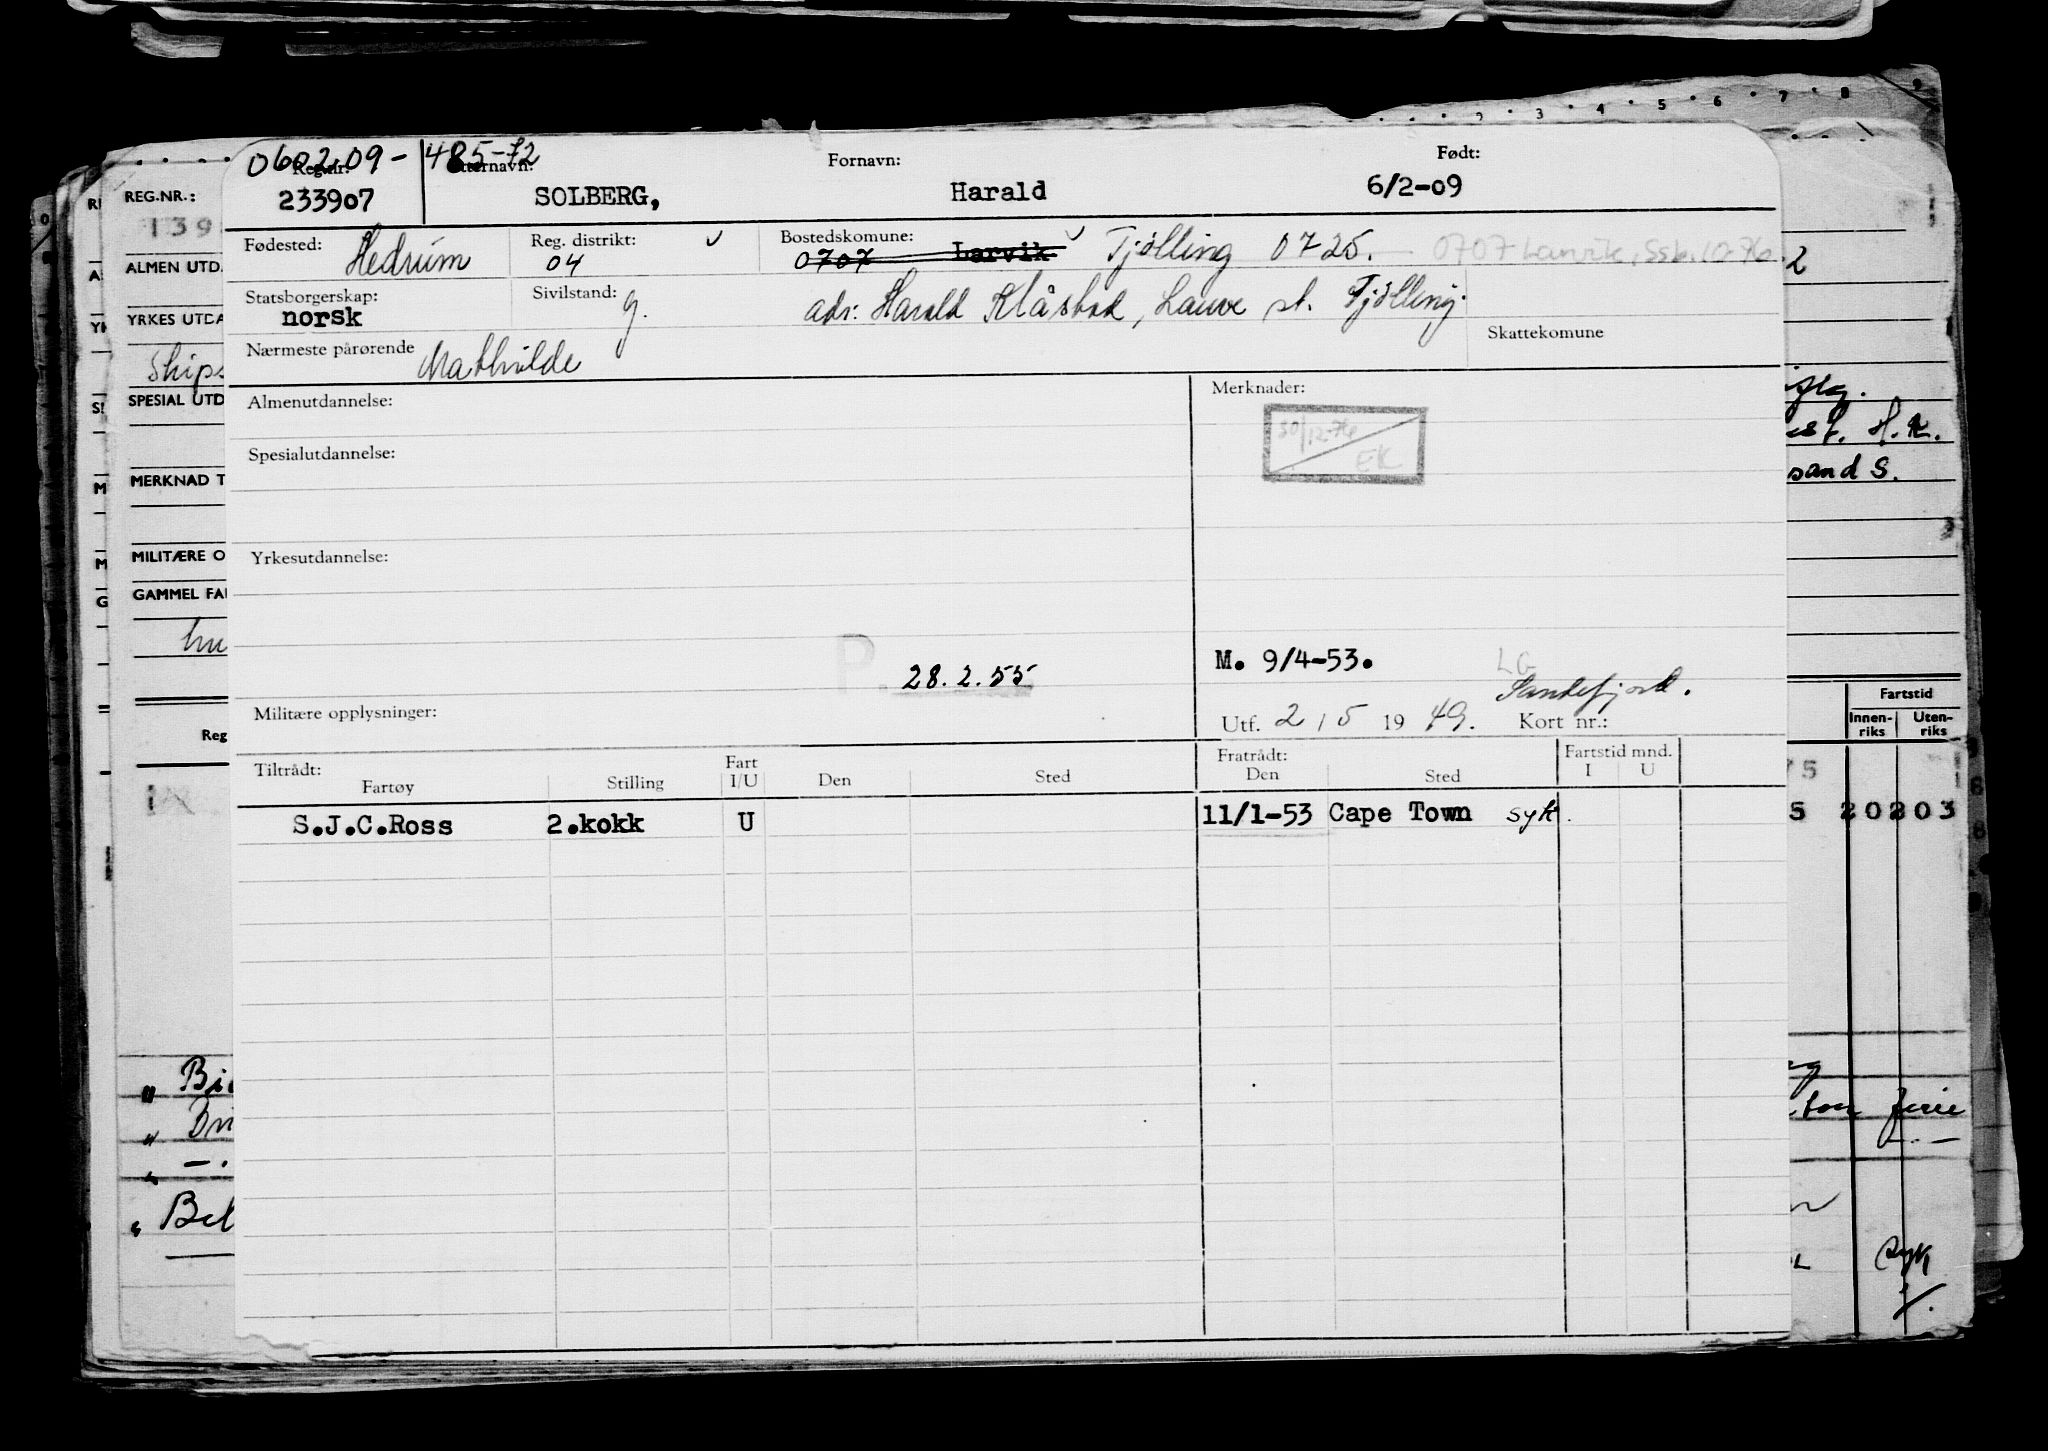 0602.09 - 485-72
Reg.nr.: Etternavn: Fornavn: Født:
233907 SOLBERG, Harald 6/2-09
Fødested: Hedrum Reg. distrikt: 04 Bostedskomune: 0707 Larvik Tjølling 0725. 0707 Larvik, Ssb. 10-76.
Statsborgerskap: norsk Sivilstand: g. adr: Harald Klåstad, Lauve st. Tjølling.
Nærmeste pårørende Mathilde Skattekomune
Almenutdannelse: Merknader:
30/12-76 EK
Spesialutdannelse:
Yrkesutdannelse:
P. 28.2.55
M. 9/4-53. LG
Sandefjord.
Militære opplysninger: Utf. 2/5 1949. Kort nr.:
Tiltrådt: Fratrådt: Fartstid mnd.
Fartøy Stilling Fart I/U Den Sted Den Sted I U
S.J.C.Ross 2.kokk U 11/1-53 Cape Town syk.
REG.NR.:
139
ALMEN UTD
YRKES UTDA
Ships
SPESIAL UTD
MERKNAD T
MILITÆRE O
GAMMEL FA
Reg
Bi
Bel
2
H.K.
sand S.
3
Fartstid
Innen-riks Uten-riks
75
5 20203
ferie
syk
2 3 4 5 6 7 8 9